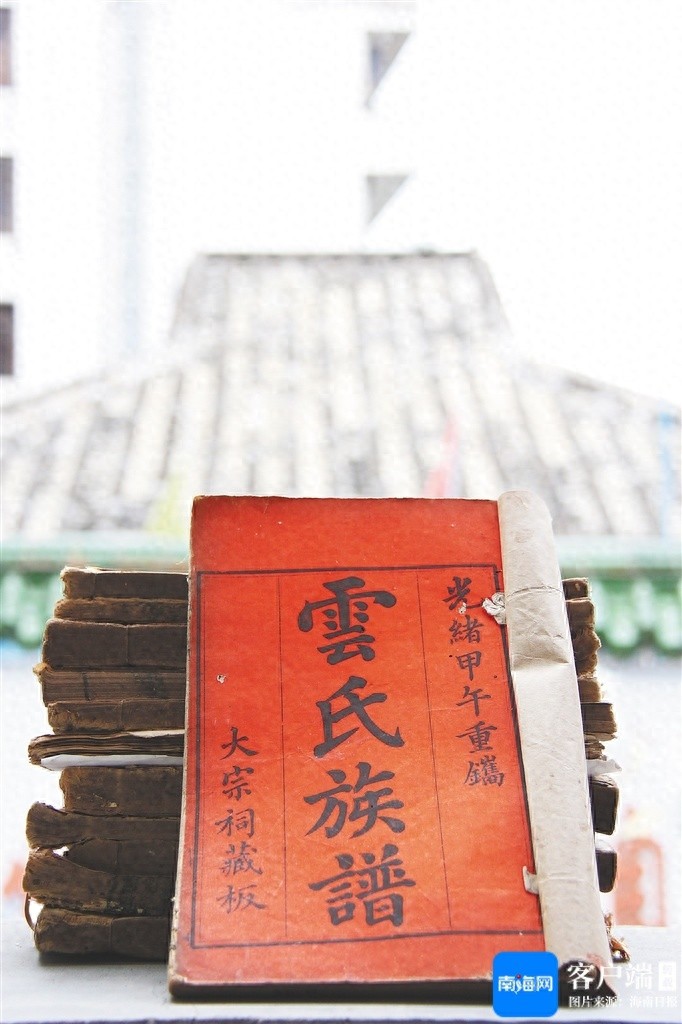 光緒甲午重鐫
雲氏族譜
大宗祠藏板
南海网
客户端
图片来源:海南日报